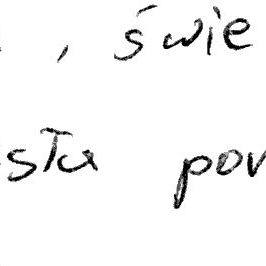 , świe
stu pow